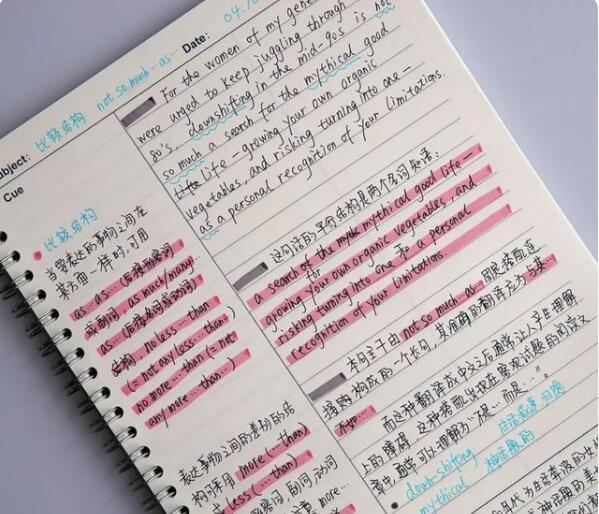 Date: 04.
Subject: 比较结构 not so much-as…
Cue
For the women of my gene
were urged to keep juggling through
80's, downshifting in the mid-90s is not
so much a search for the mythical good
life - growing your own organic
vegetables, and risking turning into one-
as a personal recognition of your limitations.
比较结构
当要表达的事物之间在
某方面一样时,可用
as…as…(后接形容词
或副词), as much/many…
as…(后接名词或动词)
结构, no less…than
(= not any less…than)
no more…than (= not
any more…than…)
表达事物之间的差别的结
构可采用 more(…than)
或 less(…than)
more…
这句话的平行结构是两个名词短语:
a search for the mythical good life-
growing your own organic vegetables, and
risking turning into one 和 a personal
recognition of your limitations.
本句主干由 not so much…as 固定搭配连
接两构成的一个长句,其准确的翻译应为“与其…
不如…
而这种翻译成中文之后通常让人产生理解
上的障碍,这种搭配出现在客观试题的阅读文
章中,通常可以理解为“不是…而是…”。
down-shifting
mythical 神话般的